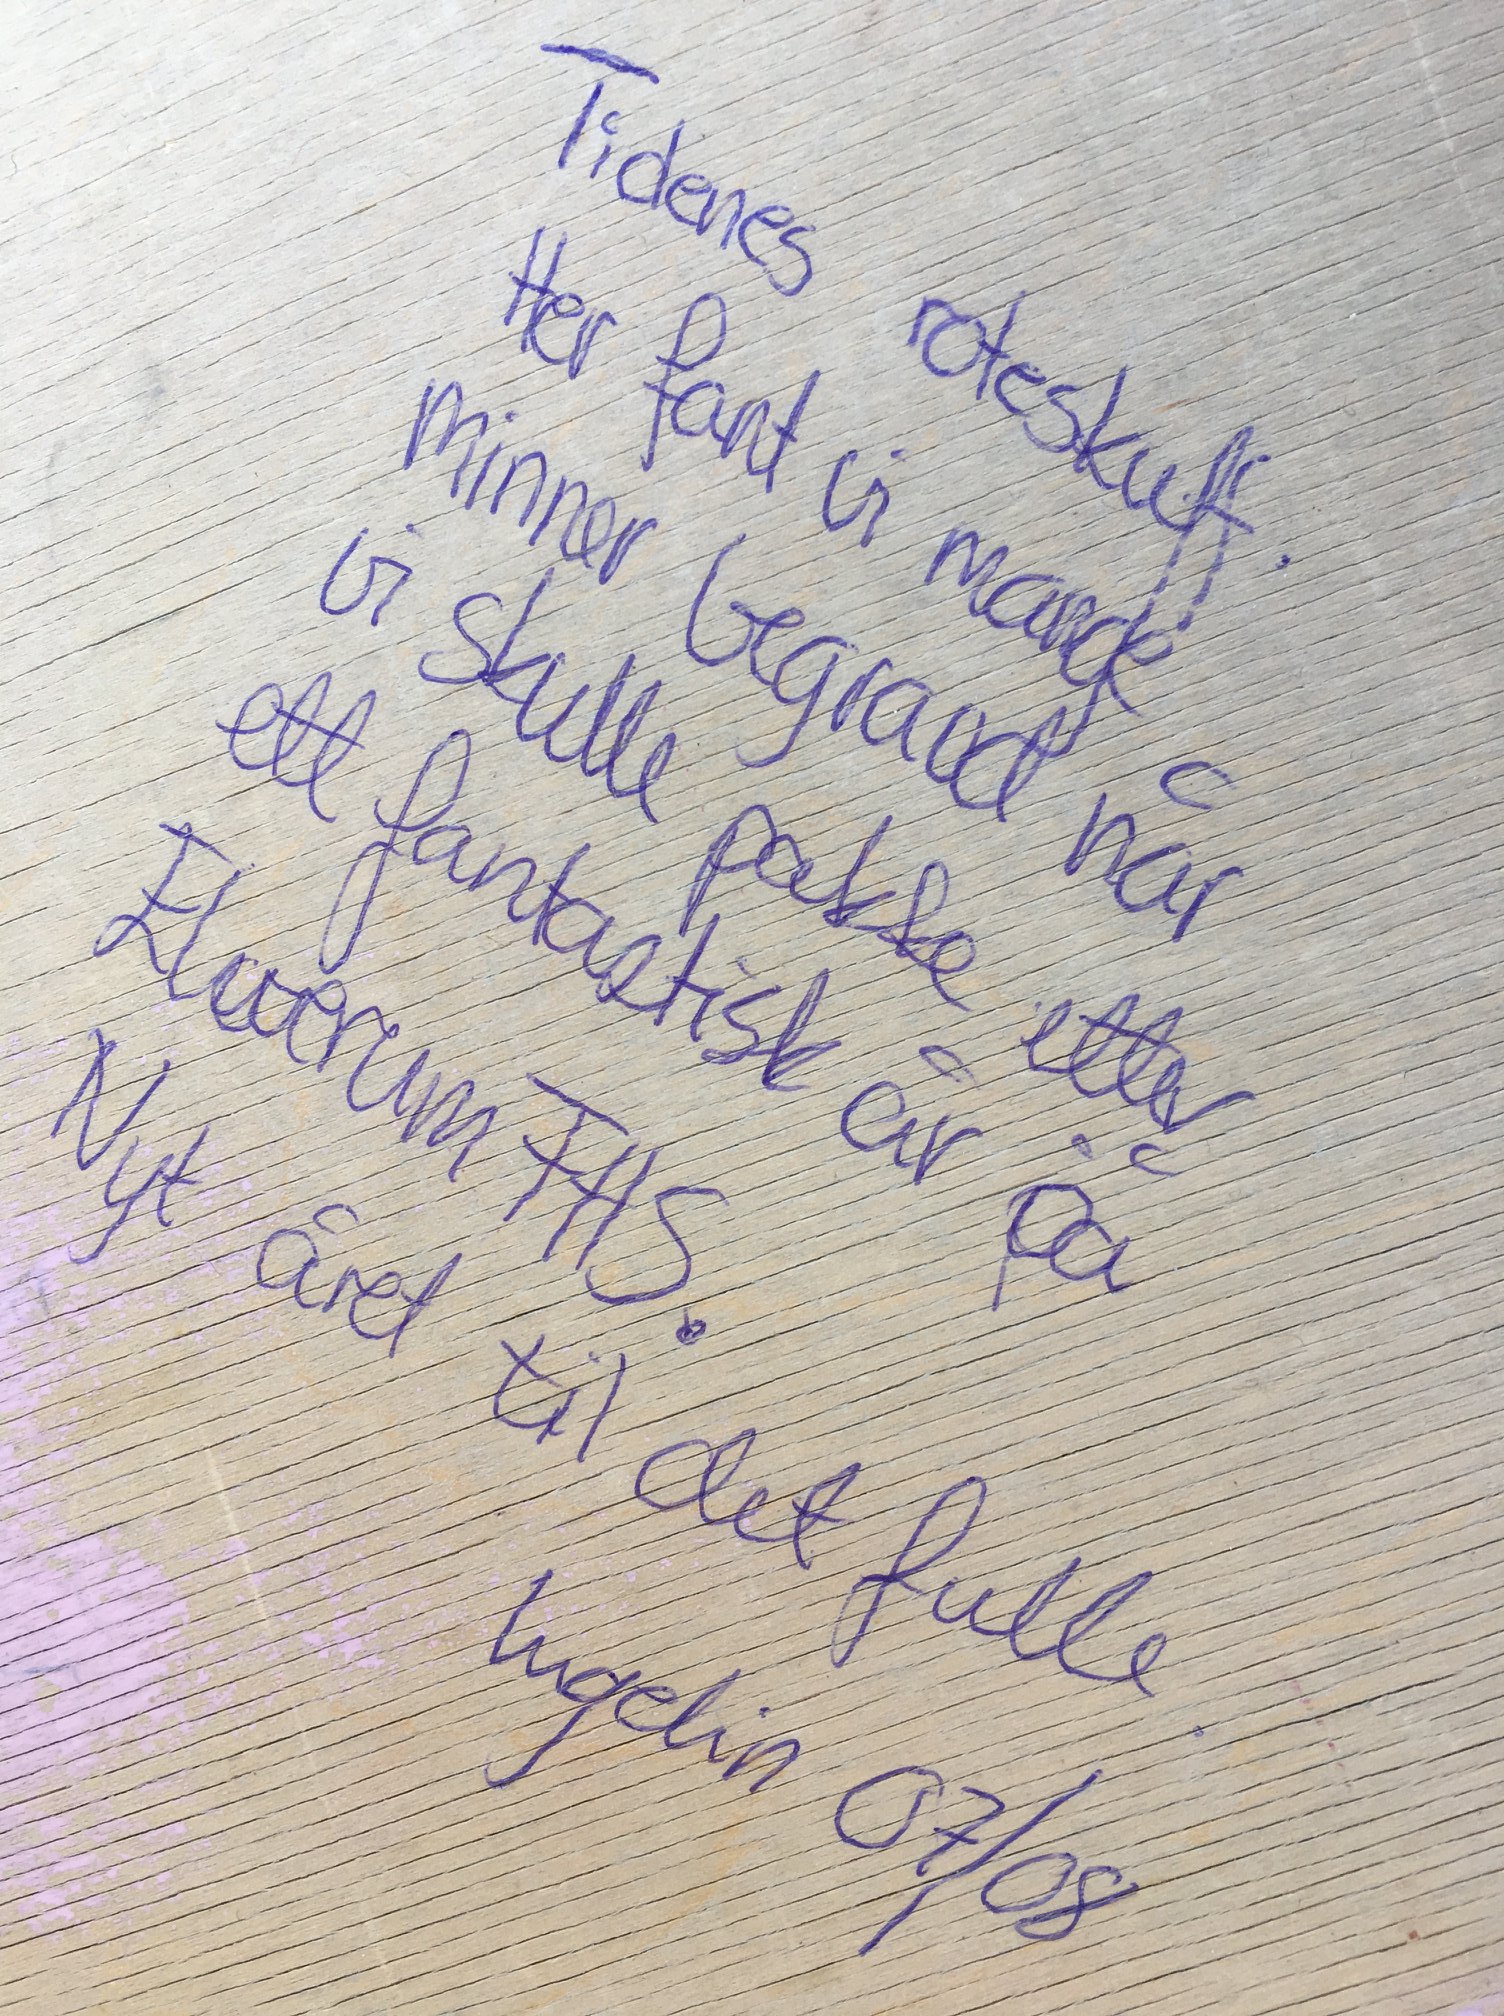 Tidenes roteskuff.
Her fant vi mange
minner begravd når
vi skulle pakke etter
ett fantastisk år på
Elverum FHS.
Nyt året til det fulle.
Ingelin 07/08